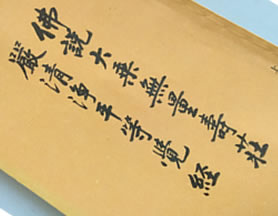 佛說大乘無量壽莊
嚴清淨平等覺經